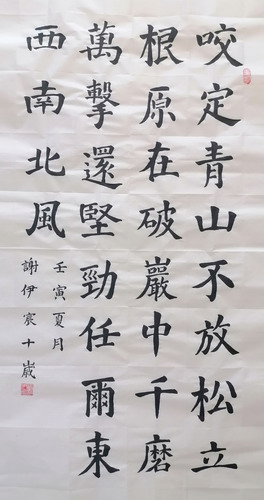 咬定青山不放松立
根原在破巖中千磨
萬擊還堅勁任爾東
西南北風
壬寅夏月
謝伊宸十歲